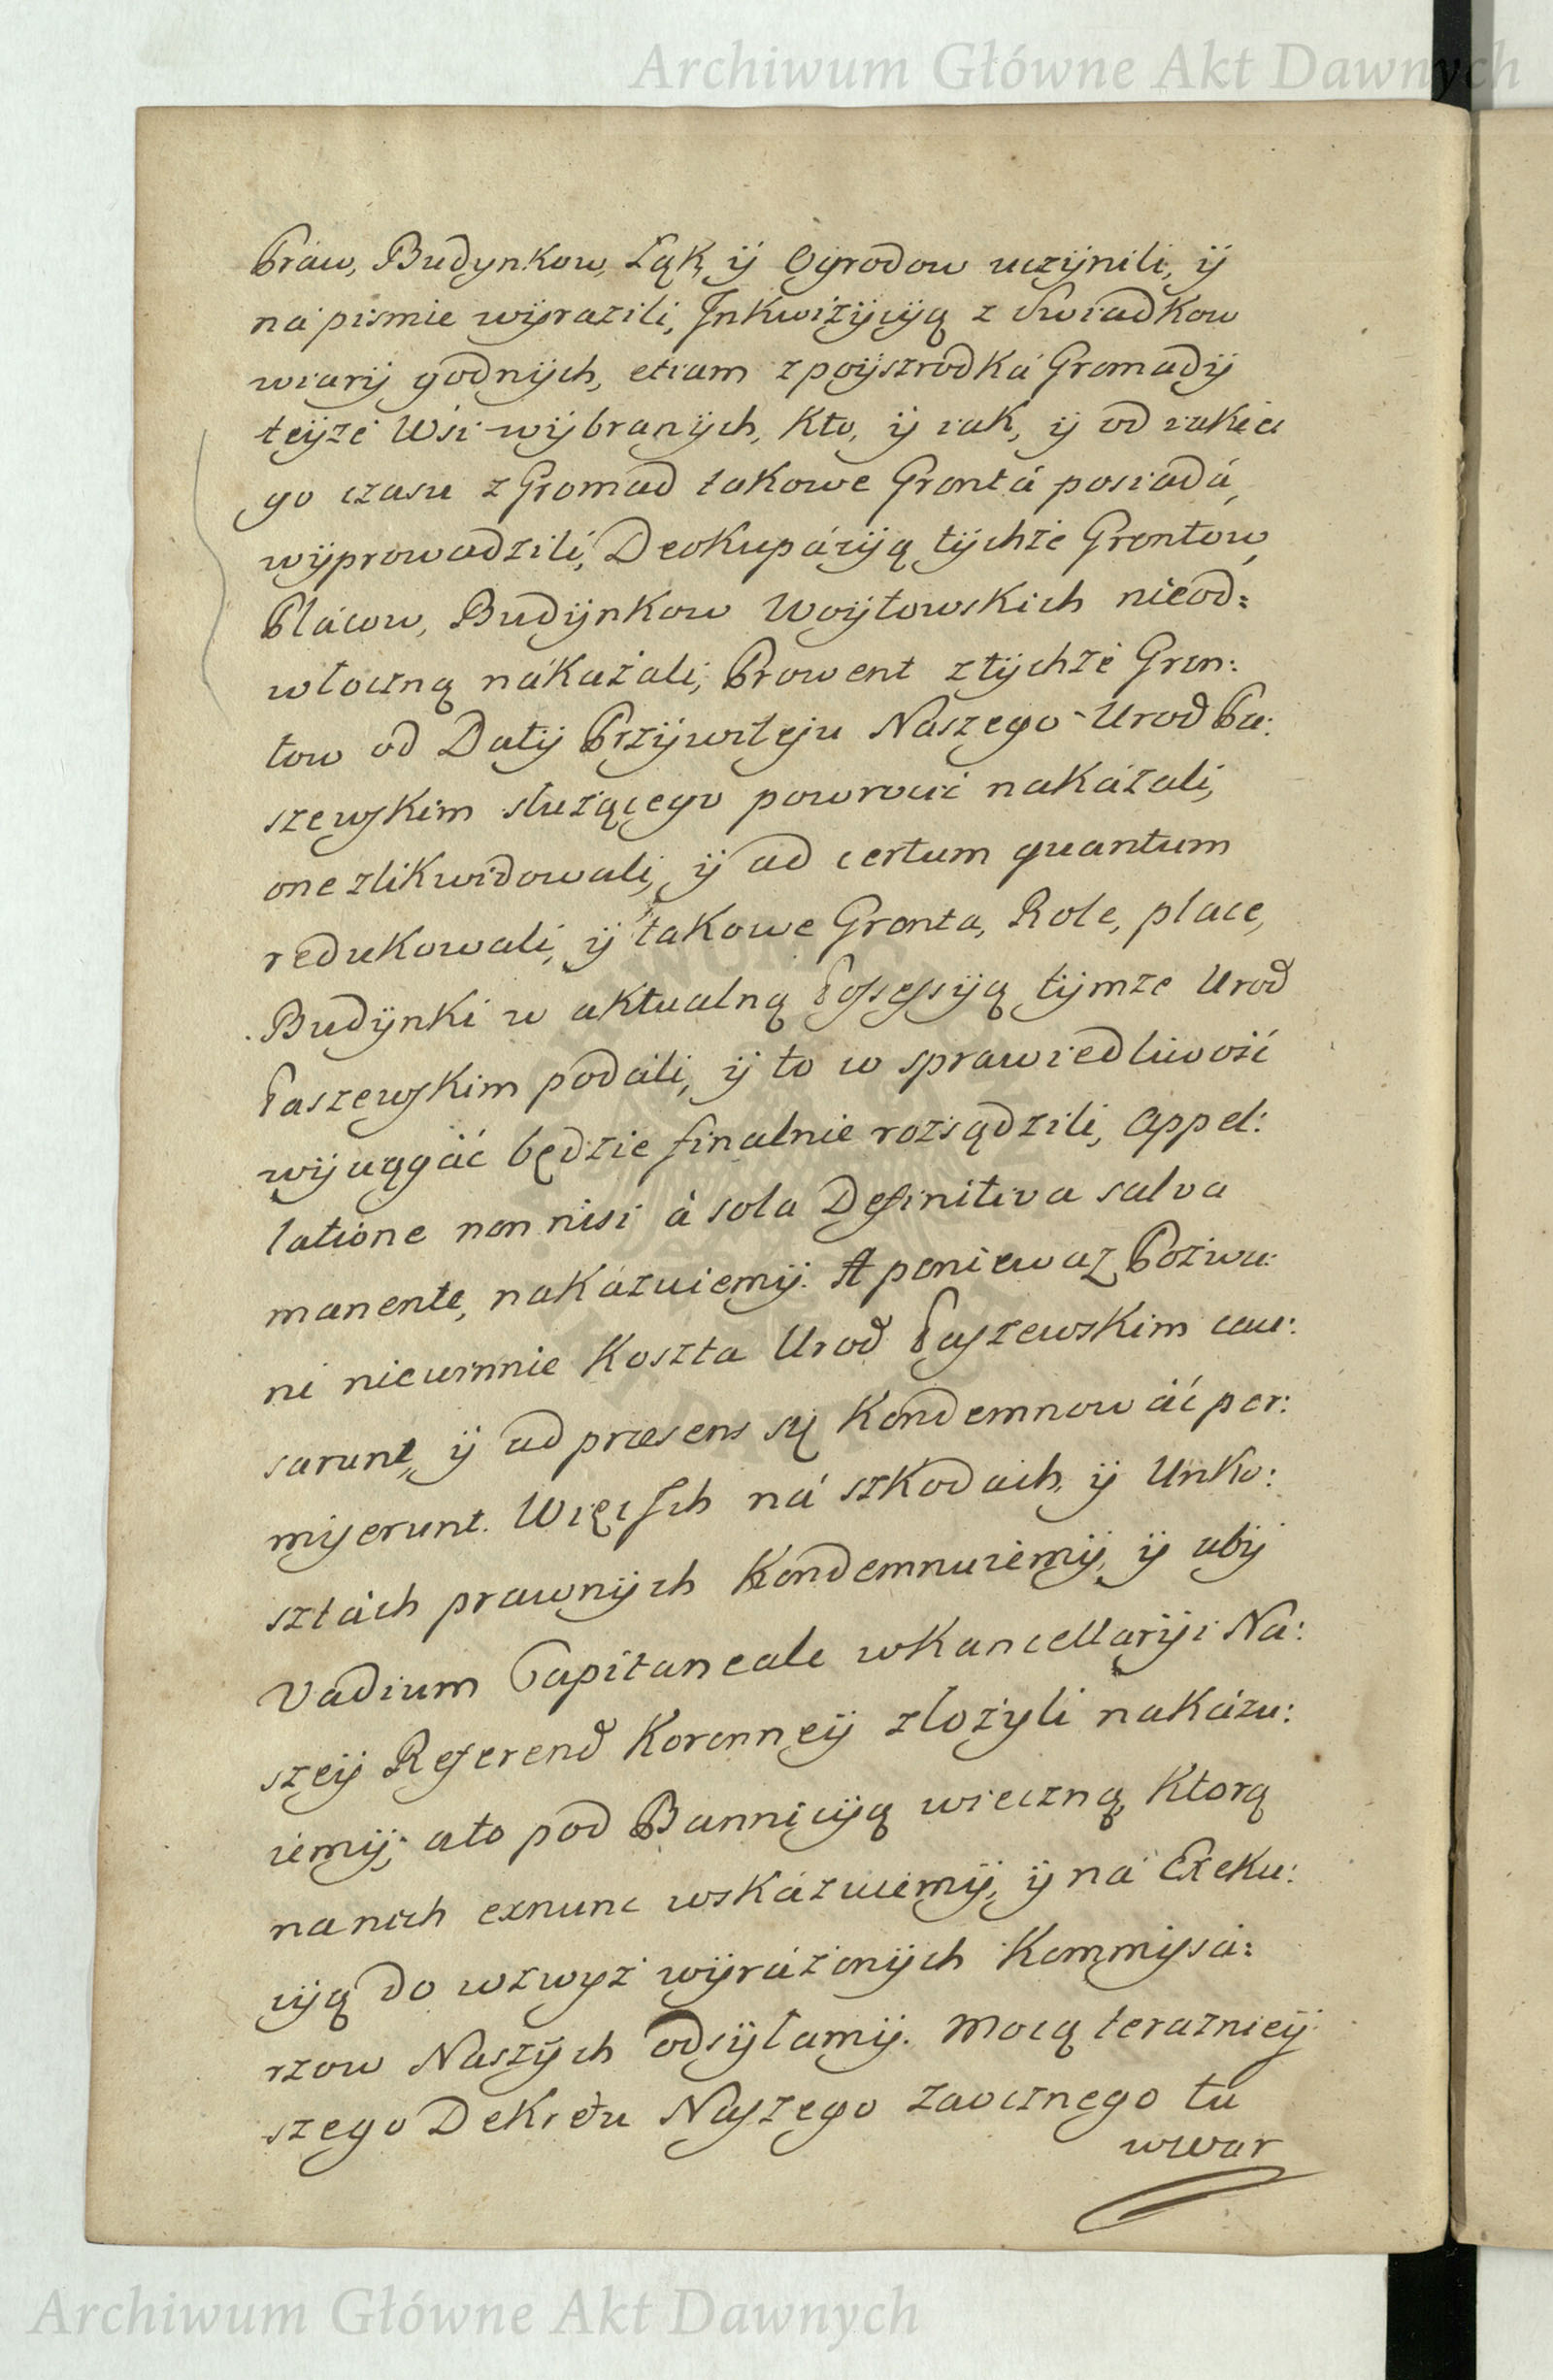 Archiwum Główne Akt Dawnych
Praw, Budynkow, Łąk, ÿ Ogrodow uczÿnili, ÿ
ná pismie wÿrazili, Inkwizÿcÿą z Swiadkow
wiarÿ godnÿch, etiam z poÿszrodká Gromadÿ
teÿze Wsi wÿbranÿch, Kto, ÿ iak, ÿ od iakie
go czasu z Gromad takowe Grontá posiadá,
wÿprowadzili, Deokupácÿą tÿchże Grontow,
Pláców, Budÿnkow Woÿtowskich nieod=
włoczną nákazali, Prowent z tÿchże Gron:
tow od Datÿ Przÿwileju Naszego Urod Pa:
szewskim służącego powrocić nakázali,
one zlikwidowali, ÿ ad certum quantum
redukowali, ÿ takowe Gronta, Role, place,
Budÿnki w aktualną Possessÿą tÿmze Urod
Paszewskim podali, ÿ to w sprawiedliwość
wÿciągáć będzie finalnie rozsądzili, Appel:
latione non nisi à sola Definitiva salva
manente, nakázuiemÿ. A poniewaz Pozwa:
ni niewinnie Koszta Urod Paszewskim cau:
sarunt, ÿ ad præsens się Kondemnowáć per:
miserunt. Więc Ich ná szkodach, ÿ Unko:
sztách prawnÿch Kondemnuiemÿ, ÿ abÿ
Vadium Capitaneale w Kancellarÿi Na:
szeÿ Referend Koronneÿ złożyli nakázu:
iemÿ, a to pod Bannicÿą wieczną, Ktorą
na nich exnunc wskázuiemÿ, ÿ ná Exeku:
cÿą do wzwyż wÿráżonÿch Kommissá:
rzow Naszÿch odsÿłamÿ. Mocą teraznieÿ
szego Dekretu Naszego zaocznego tu
wwar
Archiwum Główne Akt Dawnych